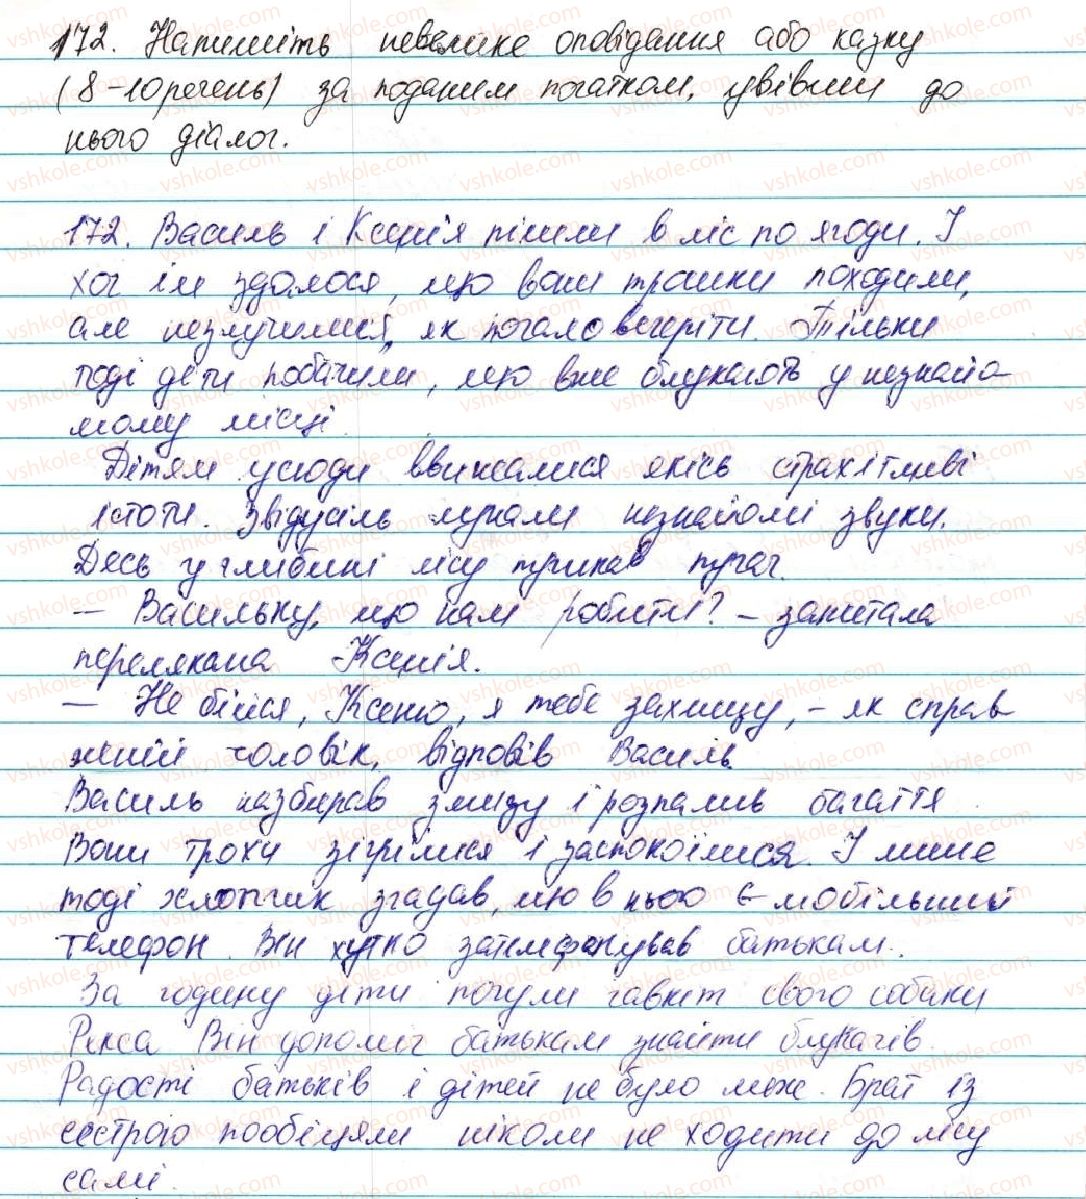 172. Напишіть невелике оповідання або казку
(8-10 речень) за поданим початком, увівши до
нього діалог.
172. Василь і Ксенія пішли в ліс по ягоди. І
хоч їм здалося, що вони трошки походили,
але незчулися, як почало вечеріти. Тільки
тоді діти побачили, що вже блукають у незнайо
мому місці.
Дітям усюди ввижалися якісь страхітливі
істоти. Звідусіль лунали незнайомі звуки.
Десь у глибині лісу пугукав пугач.
— Васильку, що нам робити? – запитала
перелякана Ксенія.
— Не бійся, Ксеню, я тебе захищу, – як справ
жній чоловік, відповів Василь
Василь назбирав хмизу і розпалив багаття
Вони трохи зігрілися і заспокоїлися. І лише
тоді хлопчик згадав, що в нього є мобільний
телефон. Він хутко зателефонував батькам.
За годину діти почули гавкіт свого собаки
Рекса Він допоміг батькам знайти блукачів.
Радості батьків і дітей не було меж. Брат із
сестрою пообіцяли ніколи не ходити до лісу
самі.
vshkole.com